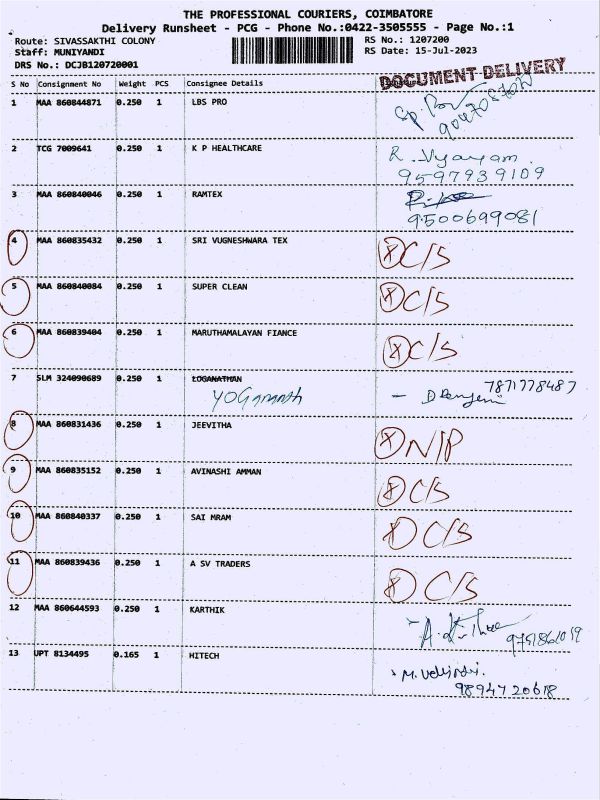 THE PROFESSIONAL COURIERS, COIMBATORE
Delivery Runsheet - PCG - Phone No.:0422-3505555 - Page No.:1
Route: SIVASSAKTHI COLONY RS No.: 1207200
Staff: MUNIYANDI RS Date: 15-Jul-2023
DRS No.: DCJB120720001
DOCUMENT DELIVERY
S No Consignment No Weight PCS Consignee Details
1 MAA 860844871 0.250 1 LBS PRO
2 TCG 7009641 0.250 1 K P HEALTHCARE R. Vyayam.
9597939109
3 MAA 860840046 0.250 1 RAMTEX
9500699081
4 MAA 860835432 0.250 1 SRI VUGNESHWARA TEX X C/S
5 MAA 860840084 0.250 1 SUPER CLEAN X C/S
6 MAA 860839404 0.250 1 MARUTHAMALAYAN FIANCE X C/S
7 SLM 324090689 0.250 1 LOGANATHAN 7871778487
8 MAA 860831436 0.250 1 JEEVITHA X N/P
9 MAA 860835152 0.250 1 AVINASHI AMMAN X C/S
10 MAA 860840337 0.250 1 SAI MRAM X C/S
11 MAA 860839436 0.250 1 A SV TRADERS X C/S
12 MAA 860644593 0.250 1 KARTHIK
13 UPT 8134495 0.165 1 HITECH
9894720618